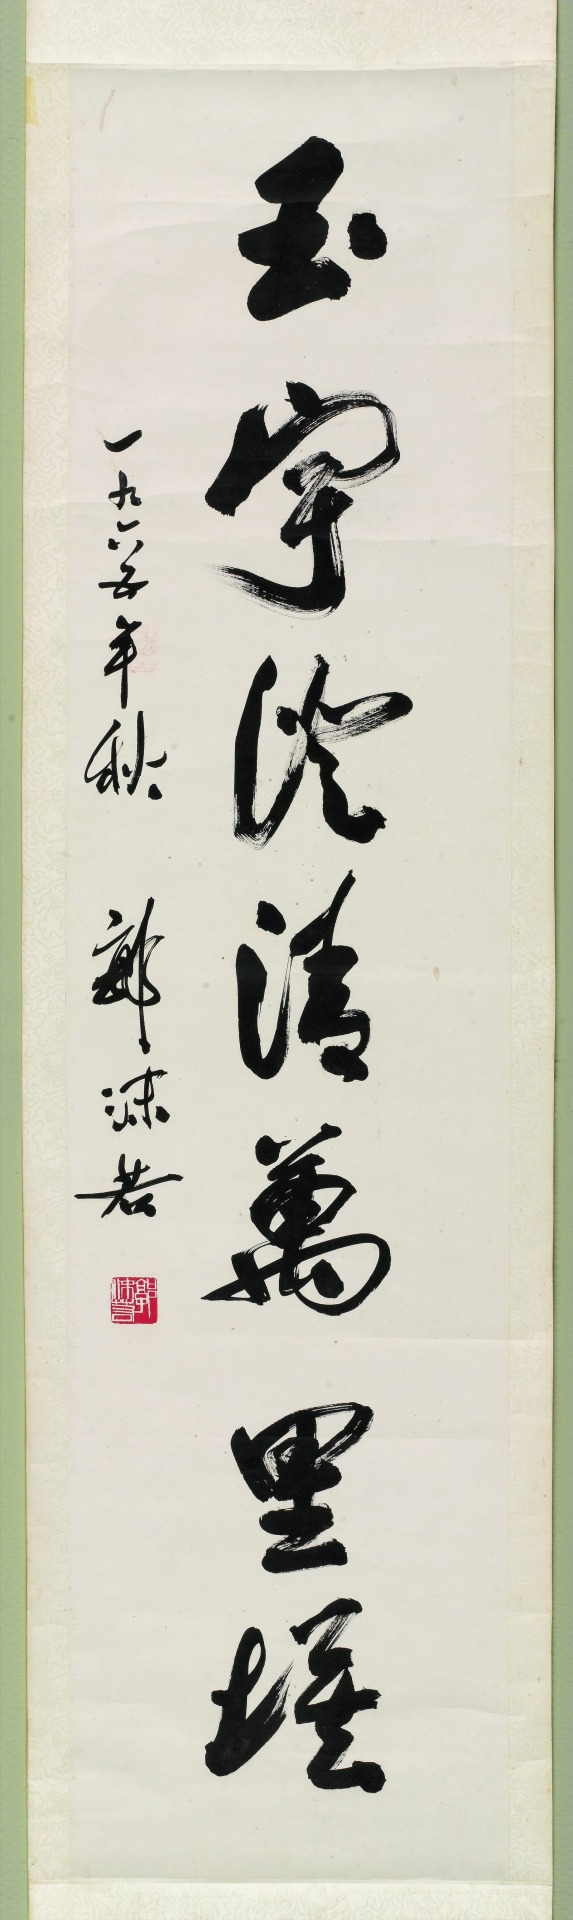 玉宇澄清萬里埃
一九六五年秋 郭沫若
郭沫若